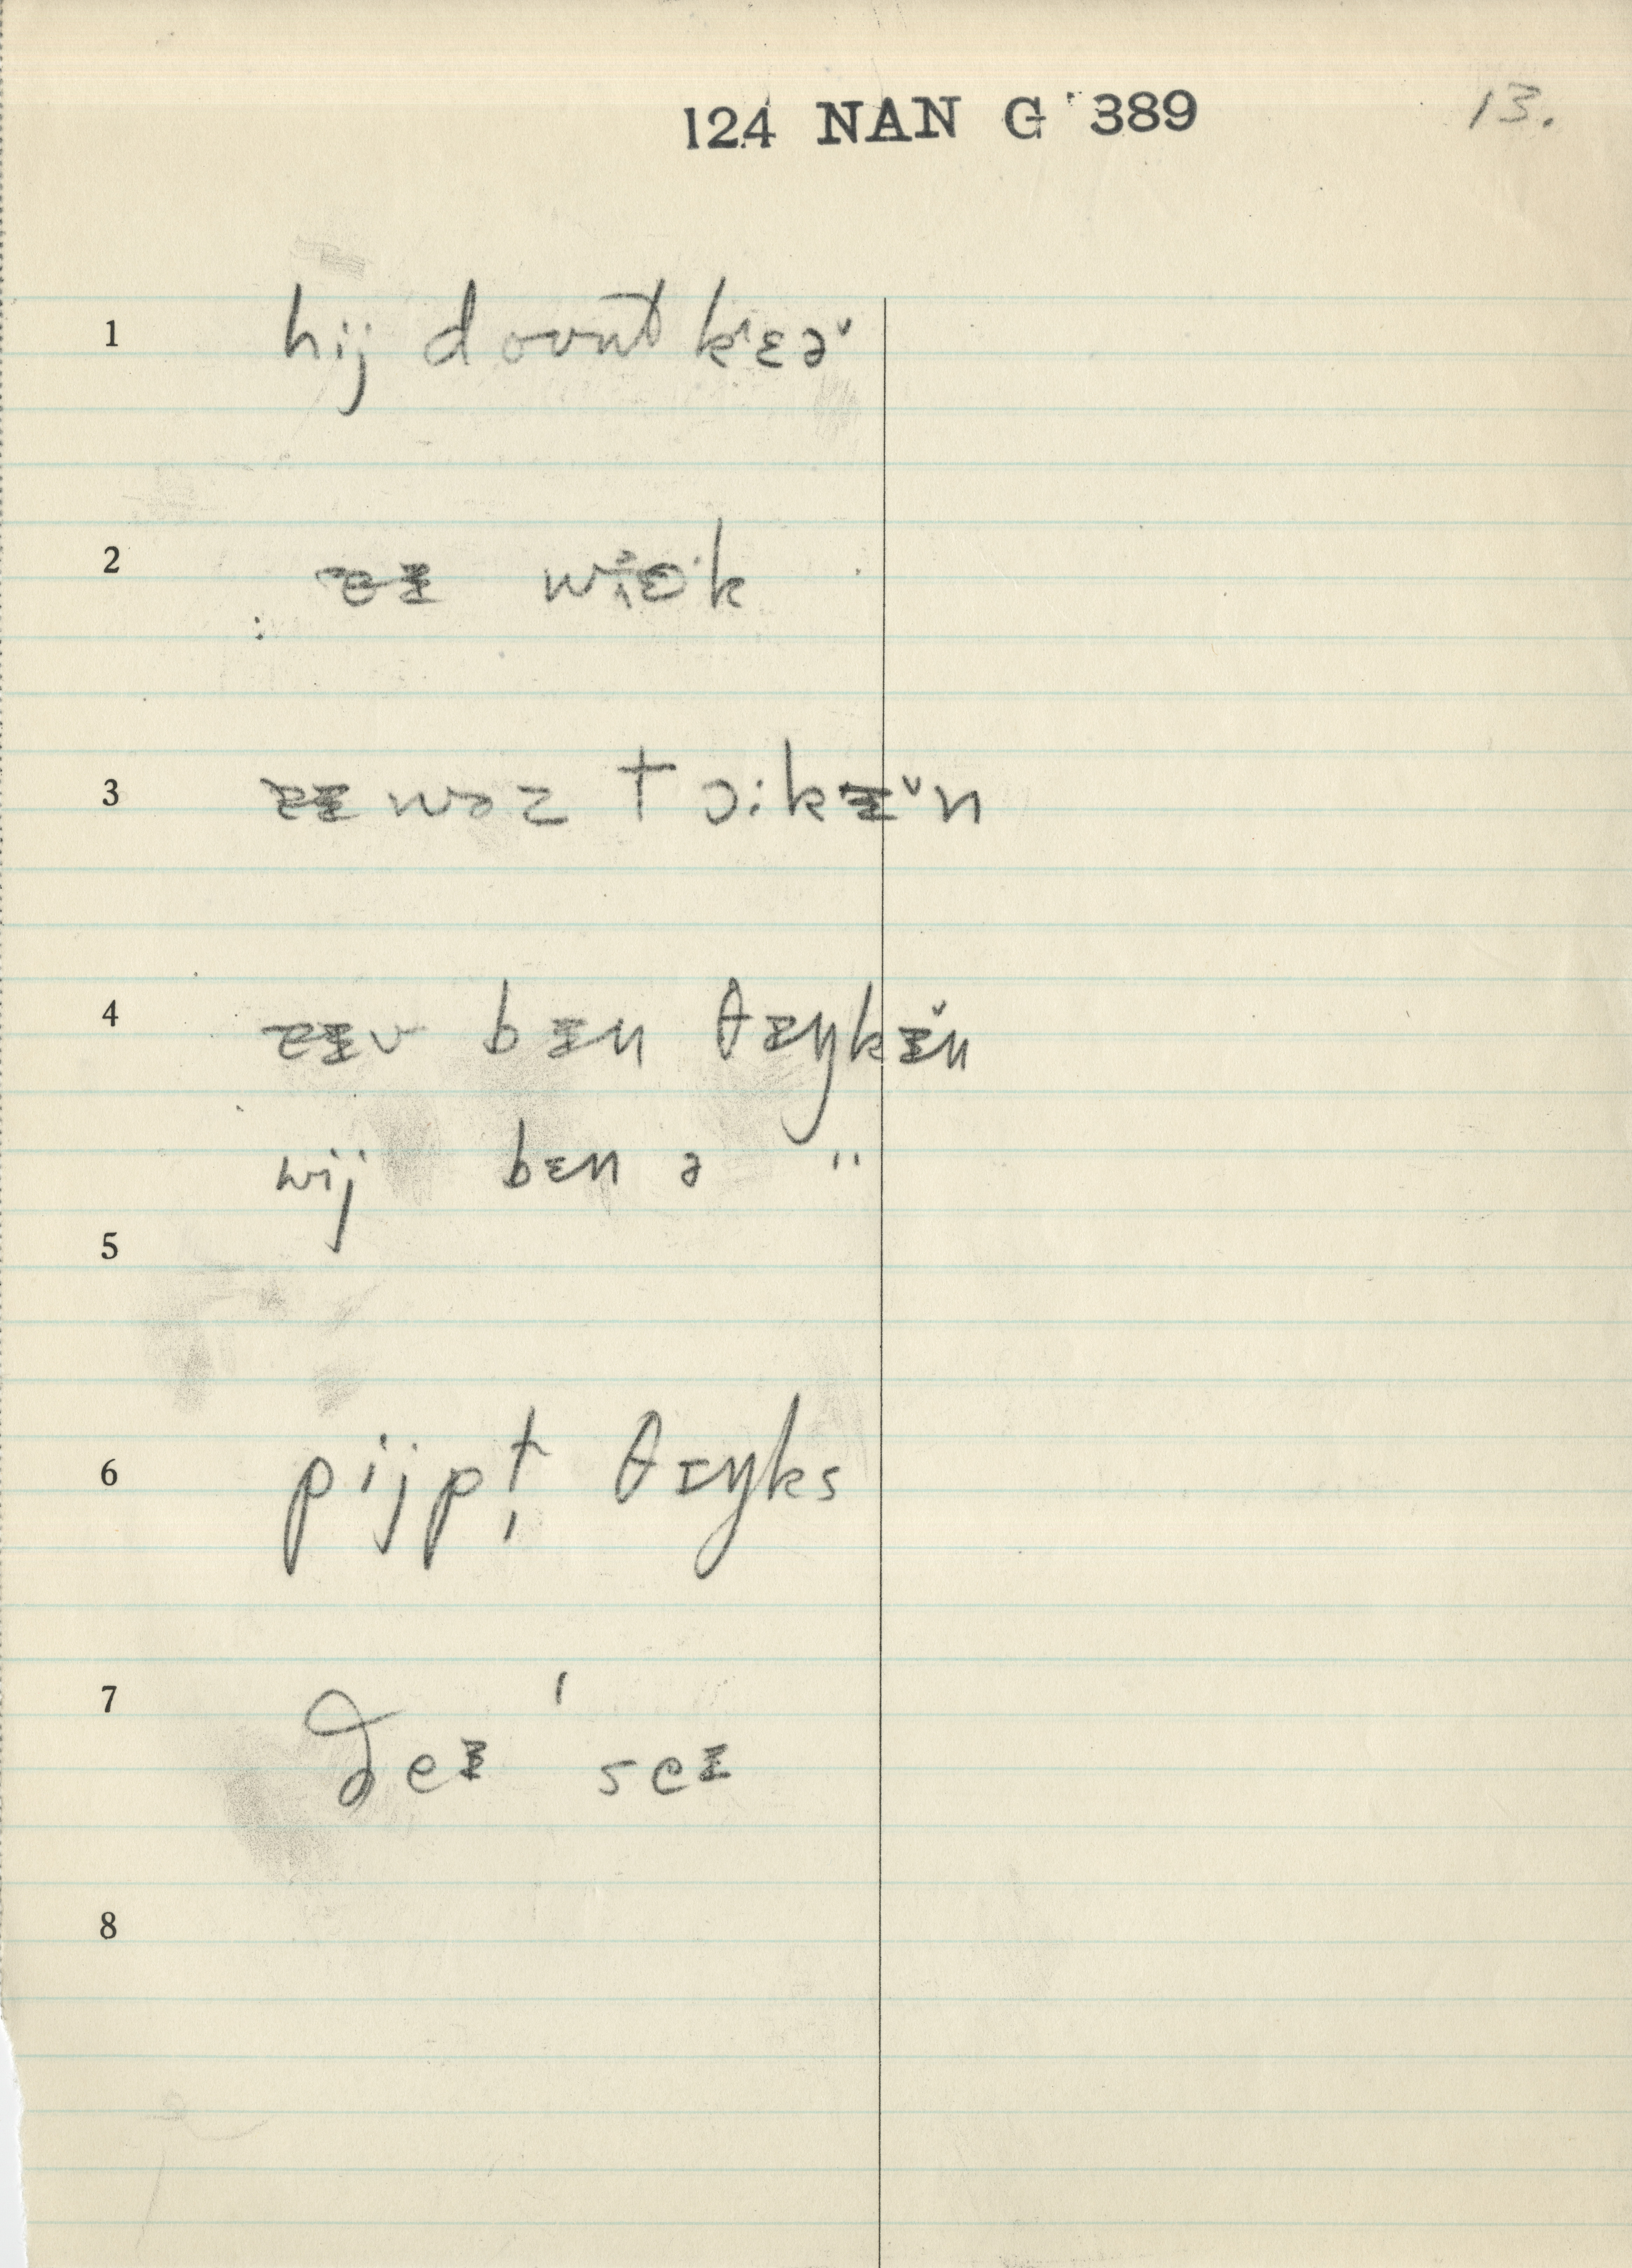 124 NAN G 389
13.
1 hij dount kɛəᵛ
2 wiək
3 wəz tɔ:kɪᵛn
4 bɪn θɪŋkɪᵛn
wij bɛn ə "
5
6 pijpt θɪŋks
7 ðeɪ ' seɪ
8